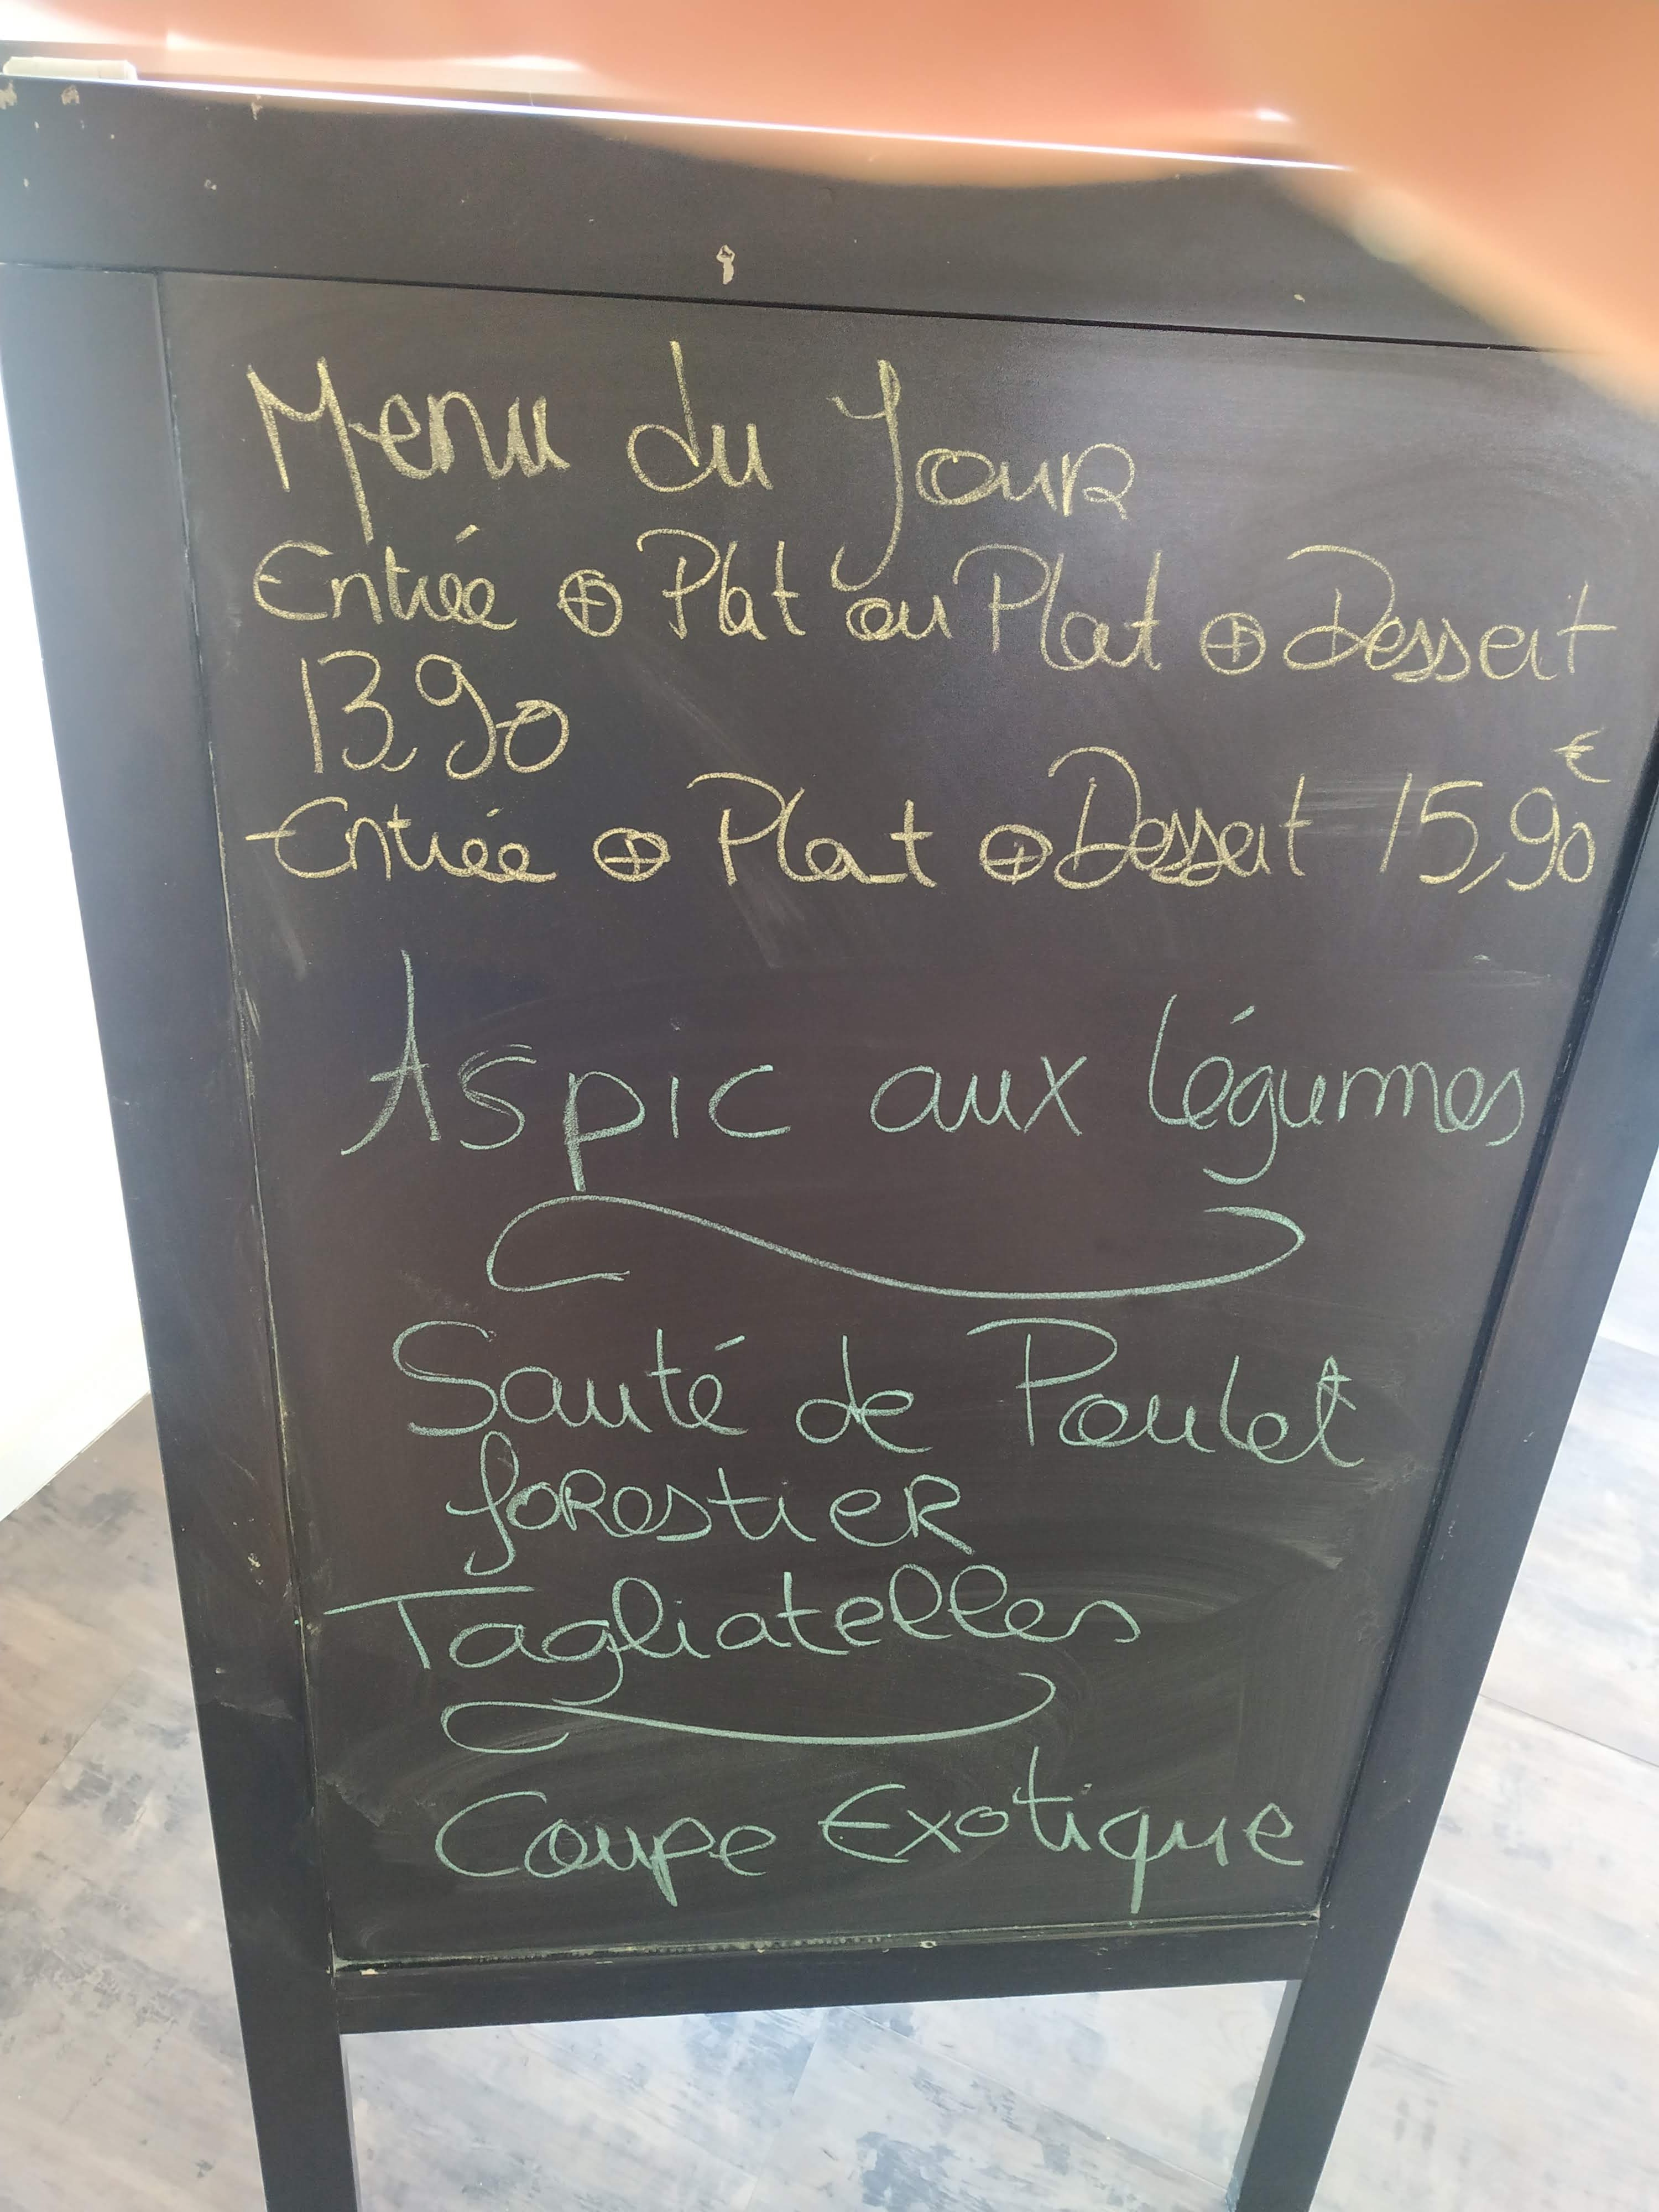 Menu du Jour
Entrée ⊕ Plat ou Plat ⊕ Dessert
13,90
Entrée ⊕ Plat ⊕ Dessert 15,90 €
Aspic aux légumes
Sauté de Poulet
forestier
Tagliatelles
Coupe Exotique